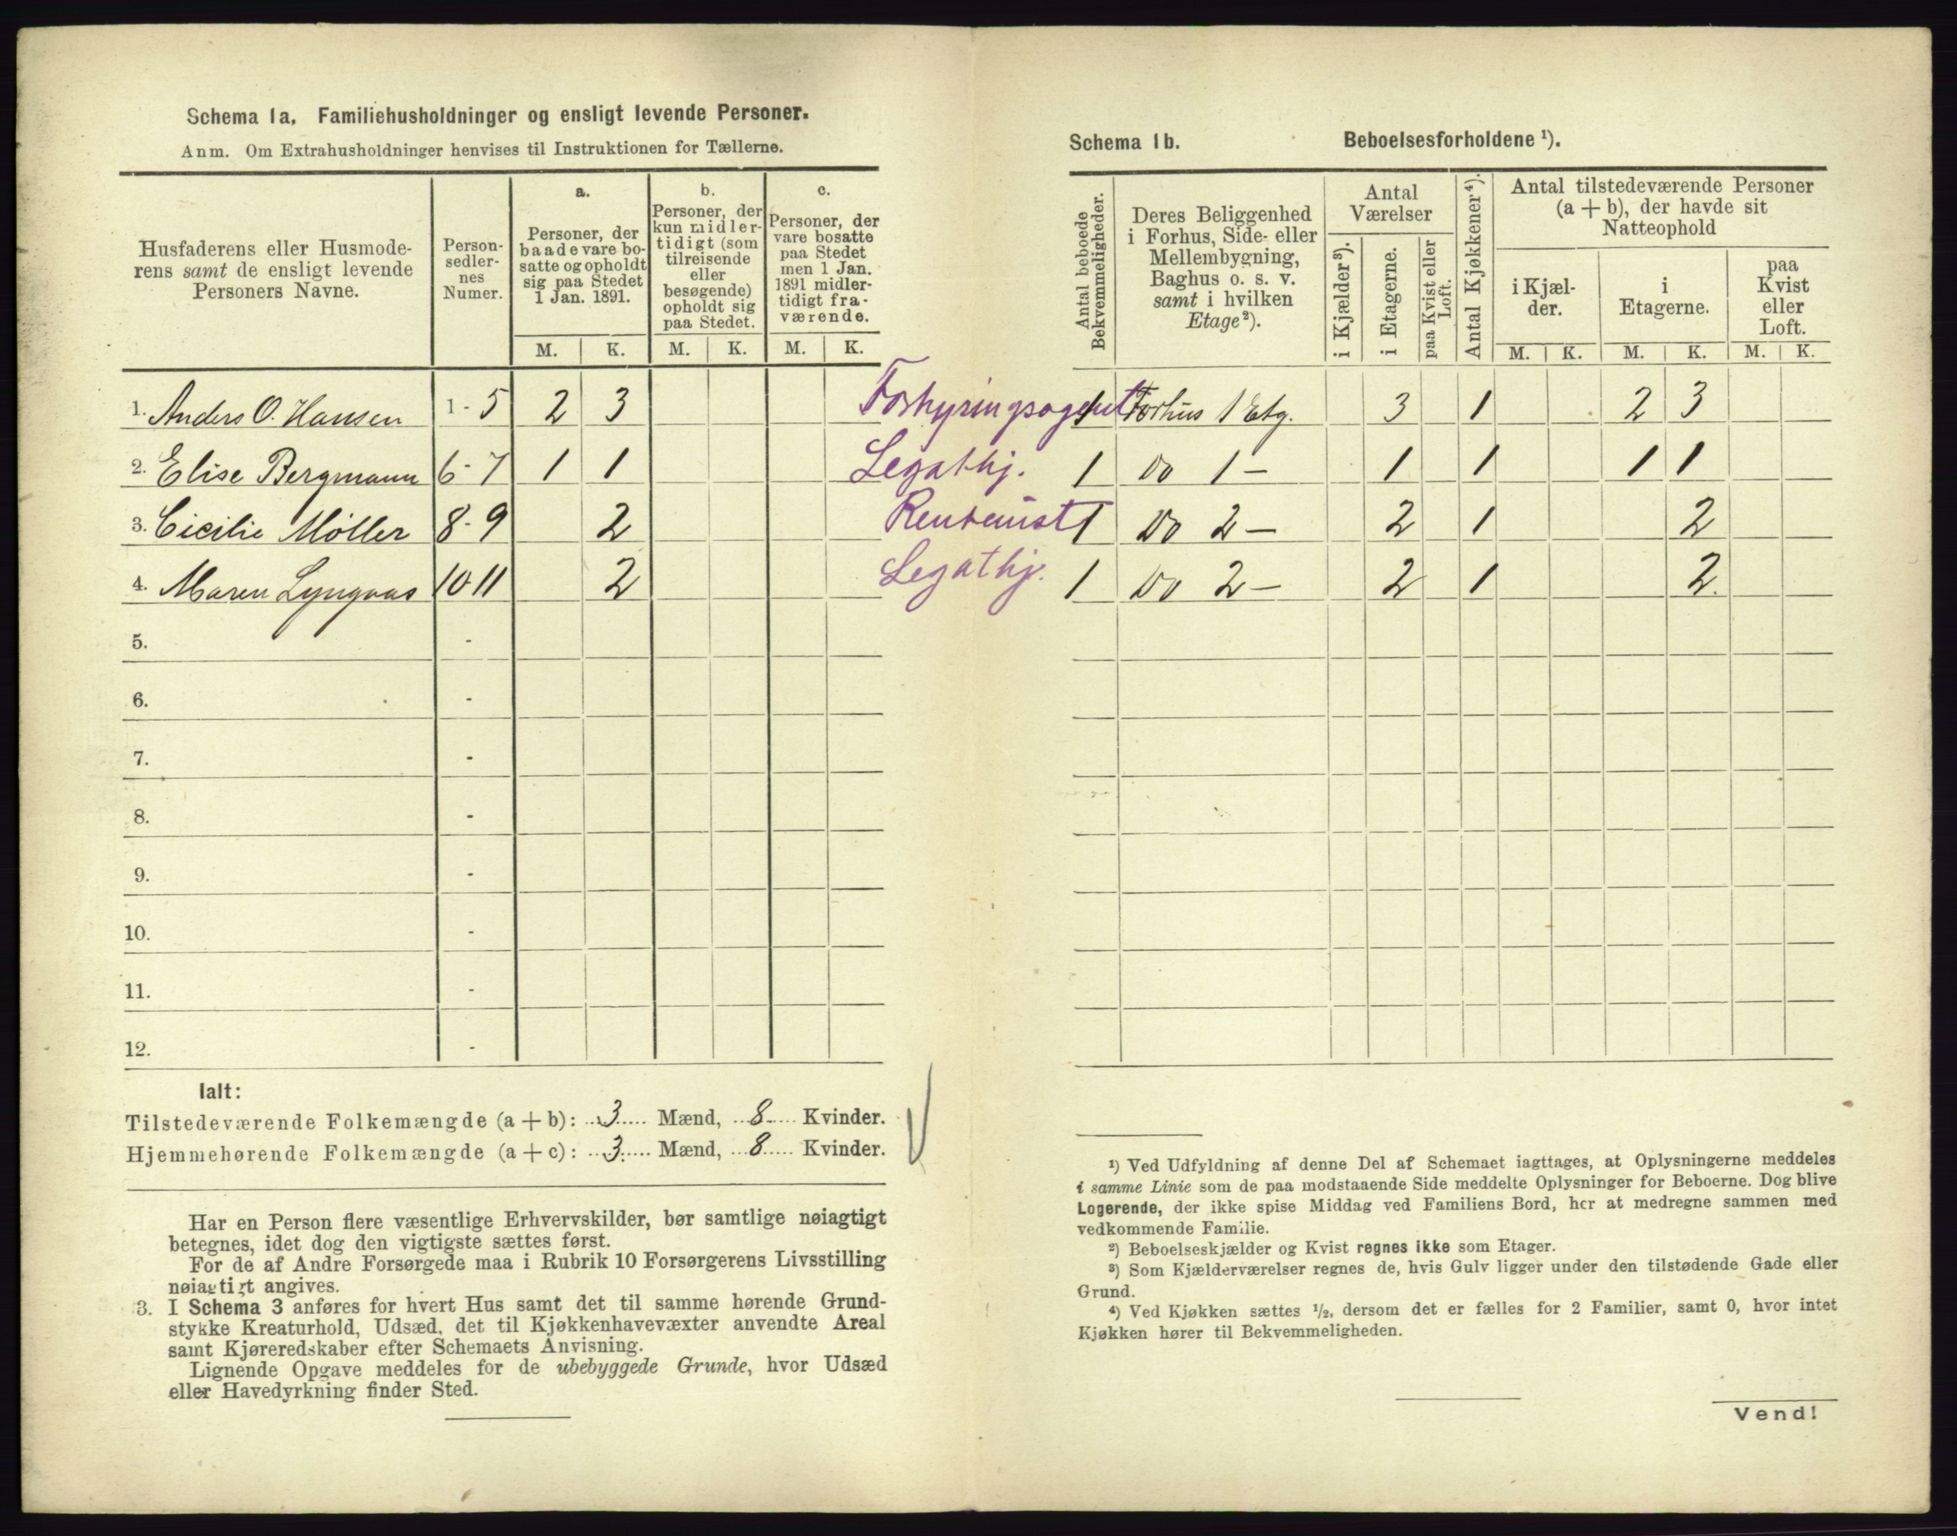 Schema 1a. Familiehusholdninger og ensligt levende Personer.
Anm. Om Extrahusholdninger henvises til Instruktionen for Tællerne.
Husfaderens eller Husmode-
rens samt de ensligt levende
Personers Navne.
Person-
sedler-
nes
Numer.
a.
Personer, der
baade vare bo-
satte og opholdt
sig paa Stedet
1 Jan. 1891.
b.
Personer, der
kun midler-
tidigt (som
tilreisende
eller
besøgende)
opholdt sig
paa Stedet.
c.
Personer, der
vare bosatte
paa Stedet
men 1 Jan.
1891 midler-
tidigt fra-
værende.
M. K. M. K. M. K.
1. Anders O. Hansen 1 - 5 2 3
2. Elise Bergmann 6 - 7 1 1
3. Cicilie Møller 8 - 9 2
4. Maren Lyngaas 10 11 2
5. -
6. -
7. -
8. -
9. -
10. -
11. -
12. -
Ialt:
Tilstedeværende Folkemængde (a + b): 3 Mænd, 8 Kvinder.
Hjemmehørende Folkemængde (a + c): 3 Mænd, 8 Kvinder.
Har en Person flere væsentlige Erhvervskilder, bør samtlige nøiagtigt
betegnes, idet dog den vigtigste sættes først.
For de af Andre Forsørgede maa i Rubrik 10 Forsørgerens Livsstilling
nøiagtigt angives.
3. I Schema 3 anføres for hvert Hus samt det til samme hørende Grund-
stykke Kreaturhold, Udsæd, det til Kjøkkenhavevæxter anvendte Areal
samt Kjøreredskaber efter Schemaets Anvisning.
Lignende Opgave meddeles for de ubebyggede Grunde, hvor Udsæd
eller Havedyrkning finder Sted.
Schema 1b. Beboelsesforholdene ¹).
Antal beboede
Bekvemmeligheder.
Deres Beliggenhed
i Forhus, Side- eller
Mellembygning,
Baghus o. s. v.
samt i hvilken
Etage²).
Antal
Værelser
i Kjælder³).
i Etagerne.
paa Kvist eller
Loft.
Antal Kjøkkener⁴).
Antal tilstedeværende Personer
(a + b), der havde sit
Natteophold
i Kjæl-
der.
i
Etagerne.
paa
Kvist
eller
Loft.
M. K. M. K. M. K.
Forhyringsagent 1 Forhus 1 Etg. 3 1 2 3
Legathj. 1 Do 1 — 1 1 1 1
Rentenist 1 Do 2 — 2 1 2
Legathj. 1 Do 2 — 2 1 2
¹) Ved Udfyldning af denne Del af Schemaet iagttages, at Oplysningerne meddeles
i samme Linie som de paa modstaaende Side meddelte Oplysninger for Beboerne. Dog blive
Logerende, der ikke spise Middag ved Familiens Bord, her at medregne sammen med
vedkommende Familie.
²) Beboelseskjælder og Kvist regnes ikke som Etager.
³) Som Kjælderværelser regnes de, hvis Gulv ligger under den tilstødende Gade eller
Grund.
⁴) Ved Kjøkken sættes ½, dersom det er fælles for 2 Familier, samt 0, hvor intet
Kjøkken hører til Bekvemmeligheden.
Vend!